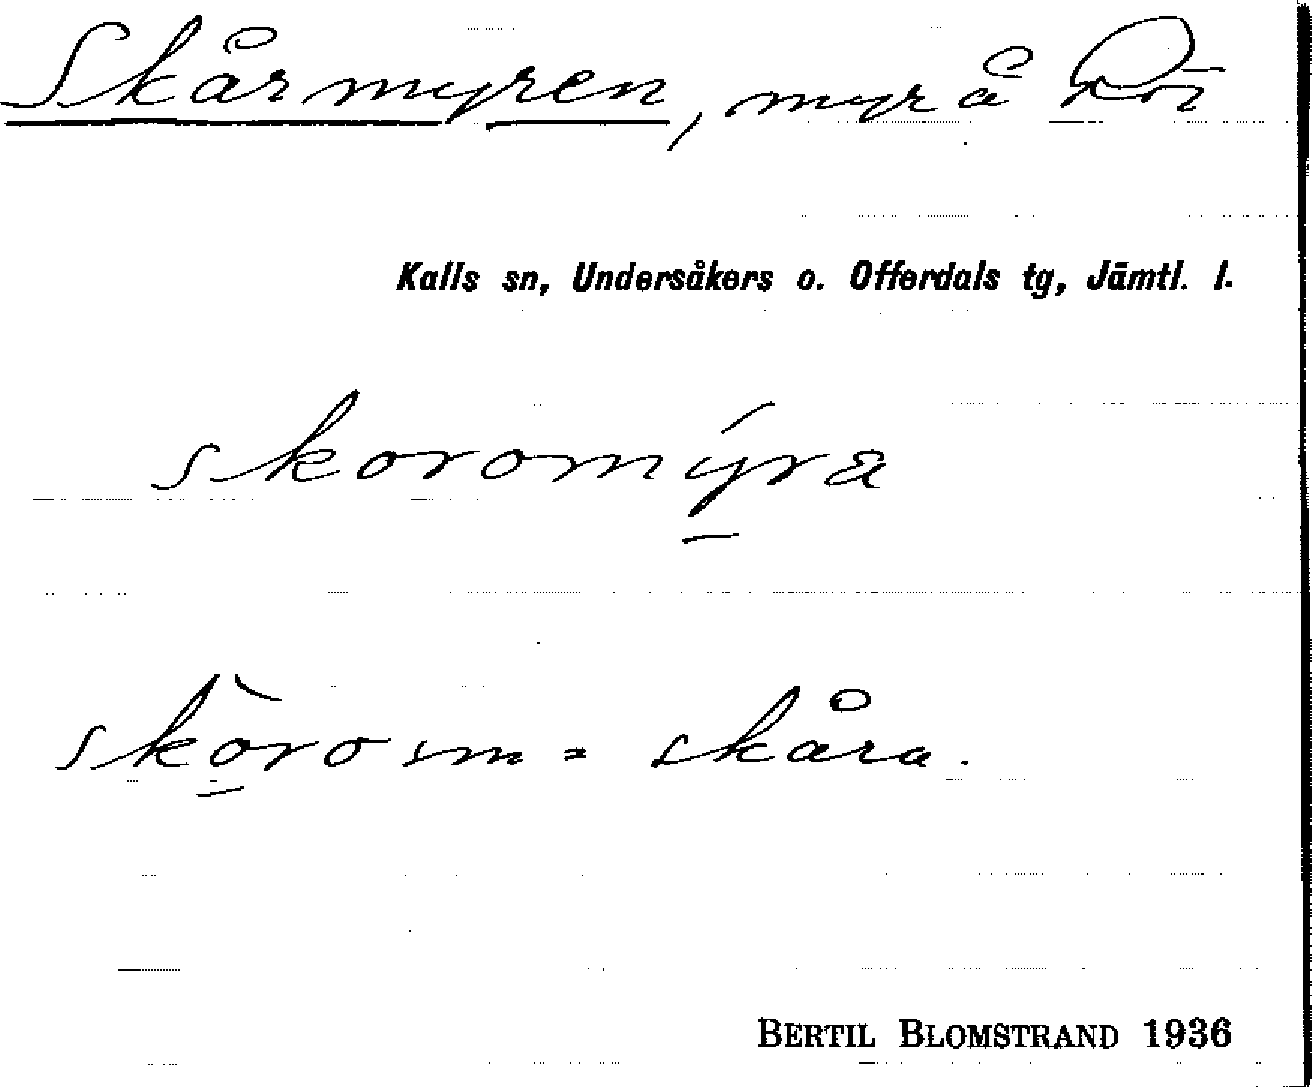 Skårmyren, myr å Röi
Kalls sn, Undersåkers o. Offerdals tg, Jämtl. l.
skoromýra
skòro sm = skåra.
BERTIL BLOMSTRAND 1936